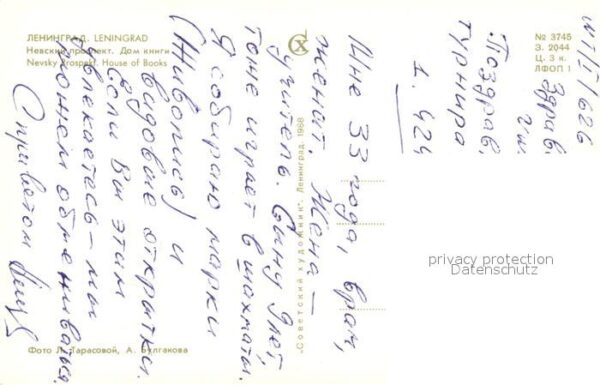 ЛЕНИНГРАД. LENINGRAD
Невский проспект. Дом книги
Nevsky Prospekt. House of Books
№ 3745
З. 2044
Ц. 3 к.
ЛФОП 1
WT/I/626
Здрав.
Поздрав,
турнира
1. 424
Мне 33 года, врач,
женат. Жена –
учитель. Сыну 9 лет,
тоже играет в шахматы.
Я собираю марки
(живопись) и
видовые открытки.
Если Вы этим
увлекаетесь – мы
можем обмениваться.
С приветом
"Советский художник". Ленинград. 1968
Фото Л. Тарасовой, А. Булгакова
privacy protection
Datenschutz